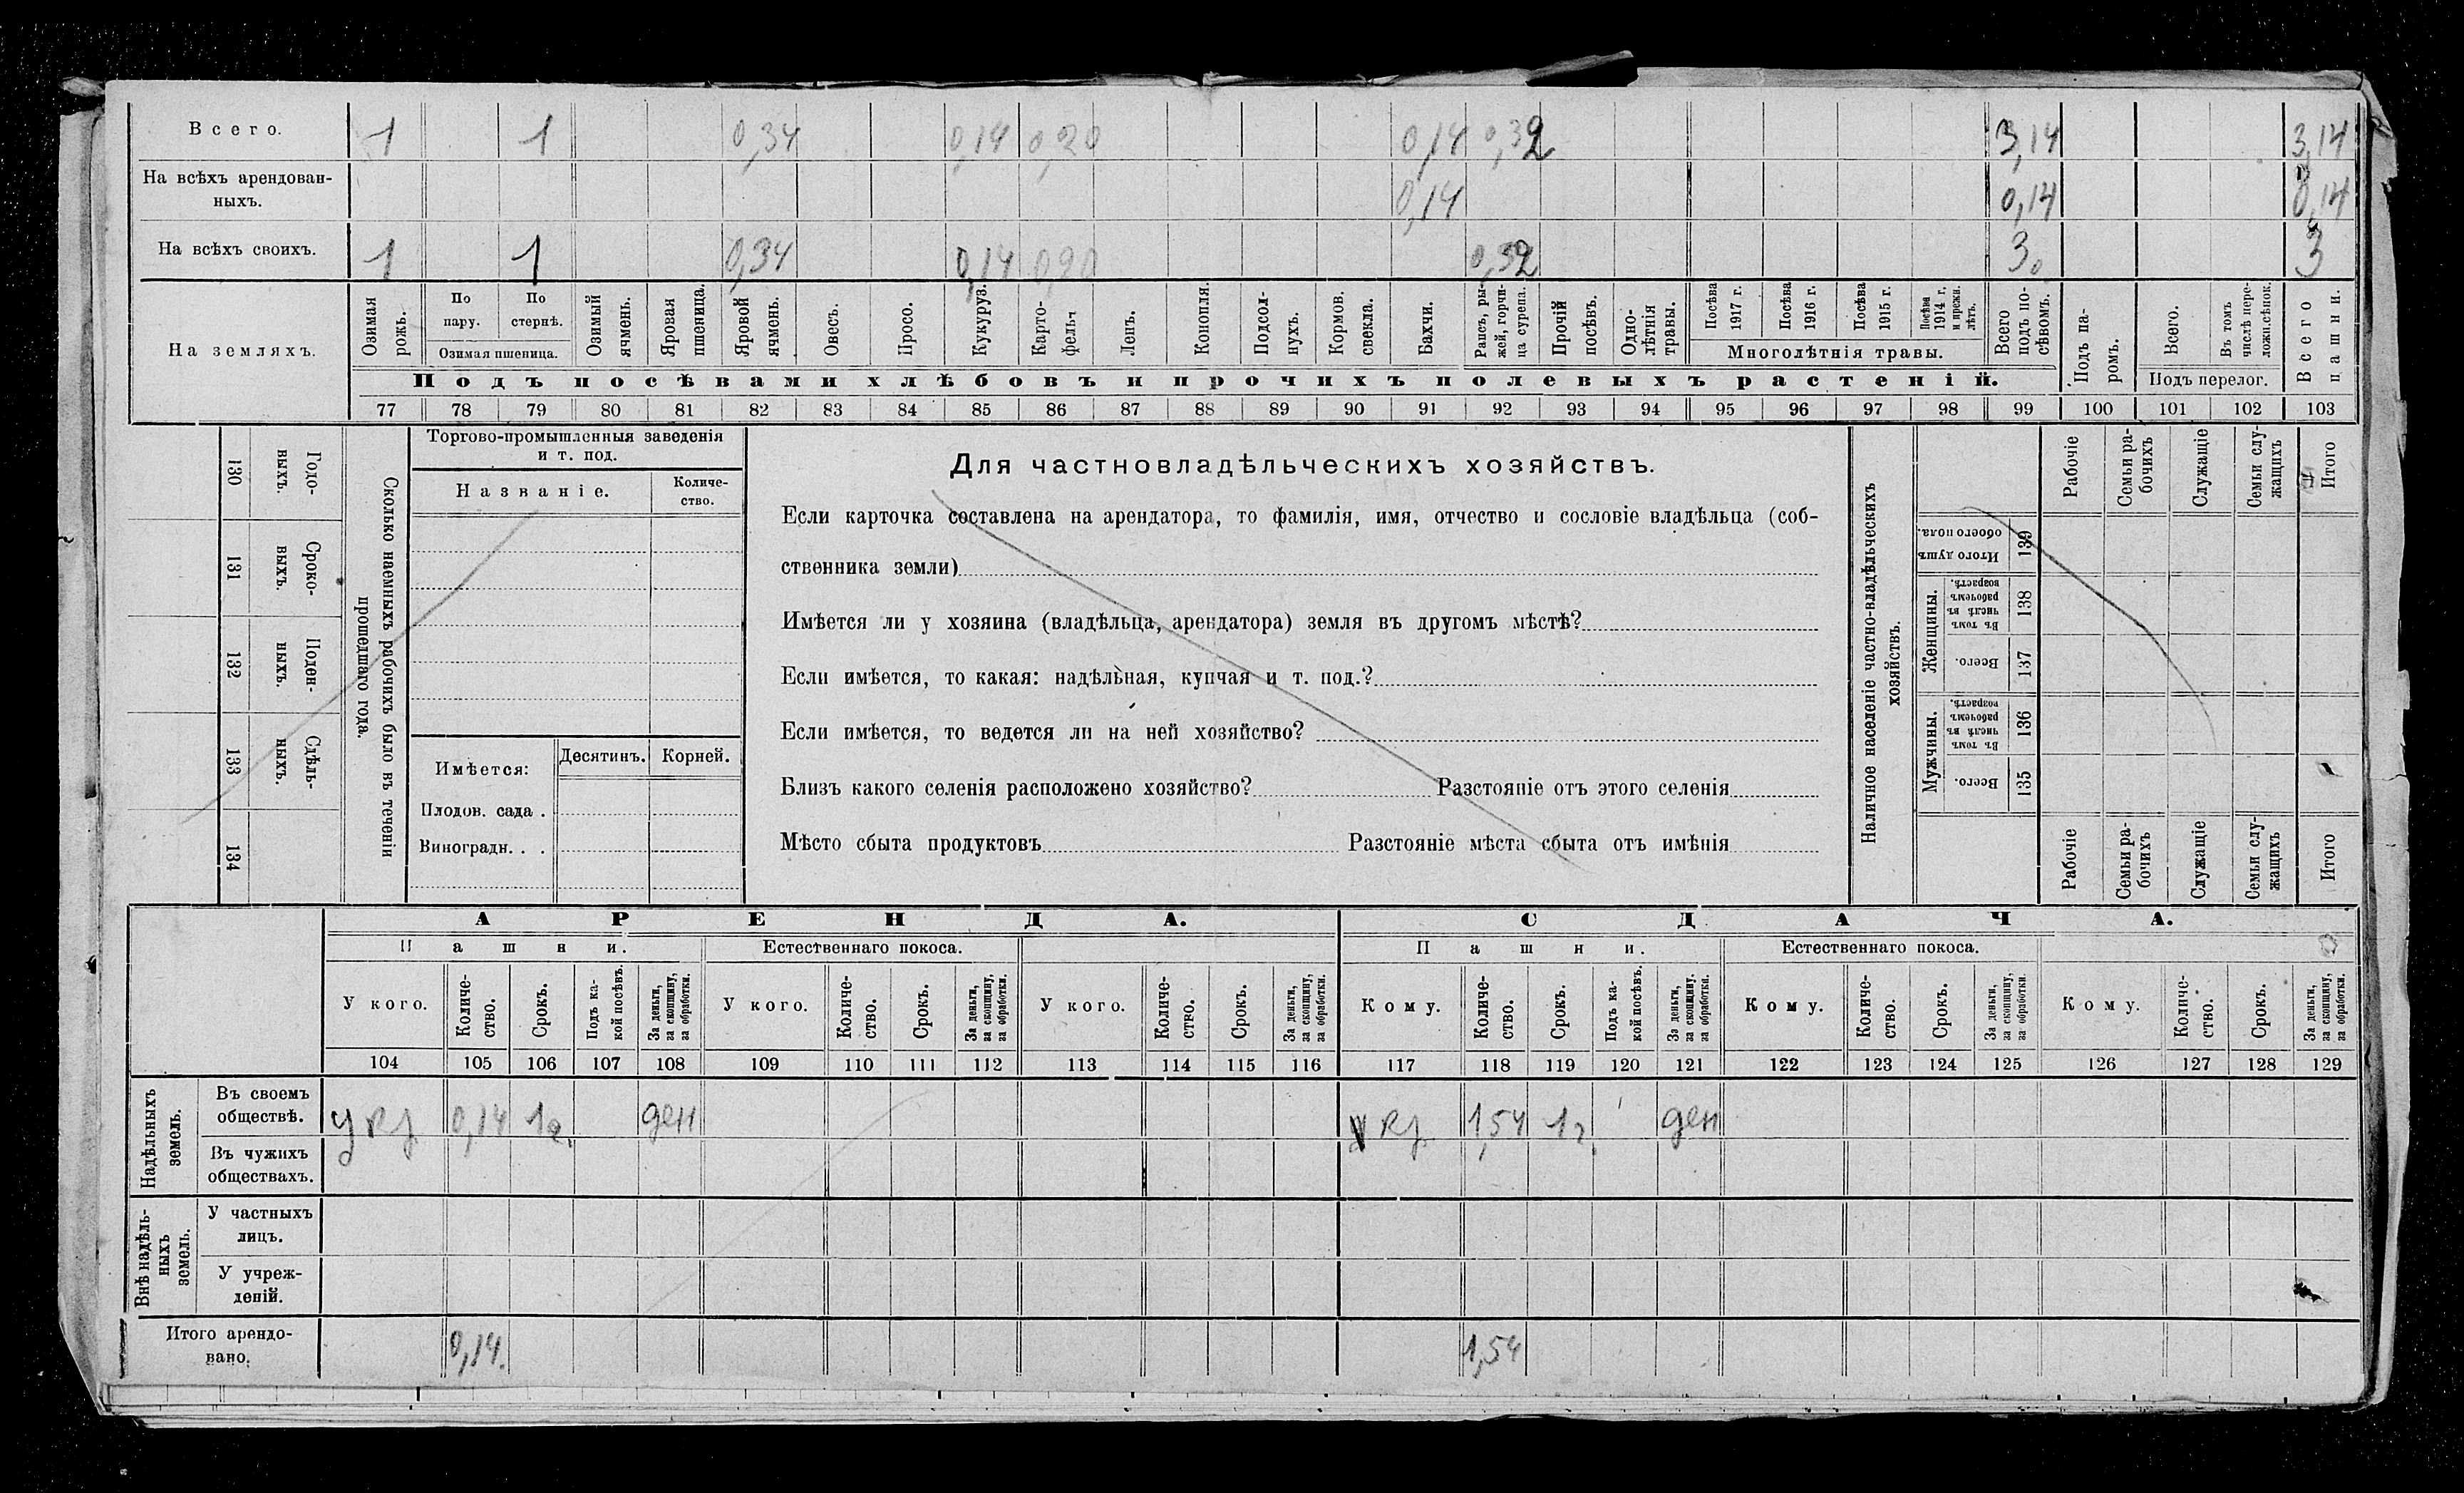 Всего. 1 1 0,34 0,14 0,20 0,14 0,32 3,14 3,14
На всѣхъ арендован-
ныхъ. 0,14 0,14 0,14
На всѣхъ своихъ. 1 1 0,34 0,14 0,20 0,32 3. 3
На земляхъ.
Озимая рожь.
По пару.
По стернѣ.
Озимая пшеница.
Озимый ячмень.
Яровая пшеница.
Яровой ячмень.
Овесъ.
Просо.
Кукуруз.
Карто-
фель
Ленъ.
Конопля.
Подсол-
нухъ.
Кормов. свекла.
Бахчи.
Рапсъ, ры-
жей, горчи-
ца сурепа.
Прочій посѣвъ.
Одно-
лѣтнія травы.
Посѣва 1917 г.
Посѣва 1916 г.
Посѣва 1915 г.
Посѣва 1914 г. и прежн. лѣтъ.
Многолѣтнія травы.
Всего подъ по-
сѣвомъ.
Подъ па-
ромъ.
Всего.
Въ томъ числѣ пере-
ложн.сѣнок.
Подъ перелог.
Всего пашни.
Подъ посѣвами хлѣбовъ и прочихъ полевыхъ растеній.
77 78 79 80 81 82 83 84 85 86 87 88 89 90 91 92 93 94 95 96 97 98 99 100 101 102 103
130 Годо-
выхъ.
131 Сроко-
выхъ.
132 Поден-
ныхъ.
133 Сдѣль-
ныхъ.
134
Сколько наемныхъ рабочихъ было въ теченіи
прошедшаго года.
Торгово-промышленныя заведенія
и т. под.
Названіе.
Количе-
ство.
Имѣется: Десятинъ. Корней.
Плодов. сада .
Виноградн. . .
Для частновладѣльческихъ хозяйствъ.
Если карточка составлена на арендатора, то фамилія, имя, отчество и сословіе владѣльца (соб-
ственника земли)
Имѣется ли у хозяина (владѣльца, арендатора) земля въ другомъ мѣстѣ?
Если имѣется, то какая: надѣльная, купчая и т. под.?
Если имѣется, то ведется ли на ней хозяйство?
Близъ какого селенія расположено хозяйство? Разстояніе отъ этого селенія
Мѣсто сбыта продуктовъ Разстояніе мѣста сбыта отъ имѣнія
Наличное населеніе частно-владѣльческихъ
хозяйствъ.
Рабочіе
Семьи ра-
бочихъ
Служащіе
Семьи слу-
жащихъ
Итого
Итого душъ обоего пола. 139
Женщины.
Въ томъ числѣ въ рабочемъ возрастѣ. 138
Всего. 137
Мужчины.
Въ томъ числѣ въ рабочемъ возрастѣ. 136
Всего. 135
Рабочіе
Семьи ра-
бочихъ
Служащіе
Семьи слу-
жащихъ
Итого
АРЕНДА. СДАЧА.
Пашни. Естественнаго покоса. Пашни. Естественнаго покоса.
У кого.
Количе-
ство.
Срокъ.
Подъ ка-
кой посѣвъ.
За деньги, за скопщину, за обработки.
У кого.
Количе-
ство.
Срокъ.
За деньги, за скопщину, за обработки.
У кого.
Количе-
ство.
Срокъ.
За деньги, за скопщину, за обработки.
Кому.
Количе-
ство.
Срокъ.
Подъ ка-
кой посѣвъ.
За деньги, за скопщину, за обработки.
Кому.
Количе-
ство.
Срокъ.
За деньги, за скопщину, за обработки.
Кому.
Количе-
ство.
Срокъ.
За деньги, за скопщину, за обработки.
104 105 106 107 108 109 110 111 112 113 114 115 116 117 118 119 120 121 122 123 124 125 126 127 128 129
Надѣльныхъ земель.
Въ своемъ
обществѣ. 0,14 1г. ден 1,54 1г. ден
Въ чужихъ
обществахъ.
Внѣ надѣль-
ныхъ земель.
У частныхъ
лицъ.
У учреж-
деній.
Итого арендо-
вано. 0,14. 1,54